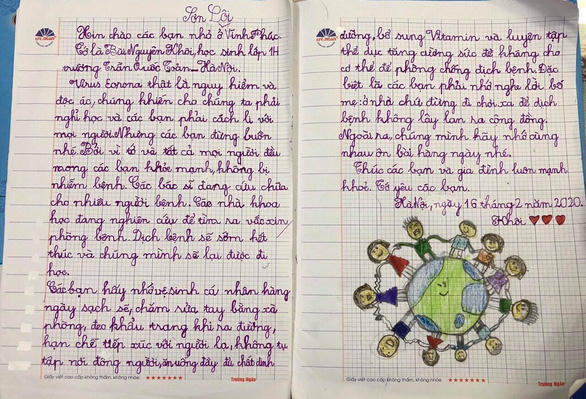 Sơn Lôi
Xin chào các bạn nhỏ ở Vĩnh Phúc.
Tớ là Bùi Nguyên Khôi, học sinh lớp 1H
trường Trần Quốc Toản - Hà Nội.
Virus Corona thật là nguy hiểm và
độc ác, chúng khiến cho chúng ta phải
nghỉ học và các bạn phải cách li với
mọi người. Nhưng các bạn đừng buồn
nhé. Bởi vì tớ và tất cả mọi người đều
mong các bạn khỏe mạnh, không bị
nhiễm bệnh. Các bác sĩ đang cứu chữa
cho nhiều người bệnh. Các nhà khoa
học đang nghiên cứu để tìm ra vắc xin
phòng bệnh. Dịch bệnh sẽ sớm kết
thúc và chúng mình sẽ lại được đi
học.
Các bạn hãy nhớ vệ sinh cá nhân hàng
ngày sạch sẽ, chăm rửa tay bằng xà
phòng, đeo khẩu trang khi ra đường,
hạn chế tiếp xúc với người lạ, không tụ
tập nơi đông người, ăn uống đầy đủ chất dinh
Giấy viết cao cấp không thấm, không nhòe
Trường Ngân
dưỡng, bổ sung Vitamin và luyện tập
thể dục tăng cường sức đề kháng cho
cơ thể để phòng chống dịch bệnh. Đặc
biệt là các bạn phải nhớ nghe lời bố
mẹ: ở nhà chứ đừng đi chơi xa để dịch
bệnh không lây lan ra cộng đồng.
Ngoài ra, chúng mình hãy nhớ cùng
nhau ôn bài hàng ngày nhé.
Chúc các bạn và gia đình luôn mạnh
khỏe. Tớ yêu các bạn.
Hà Nội, ngày 16 tháng 2 năm 2020.
Khôi ♥♥♥
Giấy viết cao cấp không thấm, không nhòe
Trường Ngân